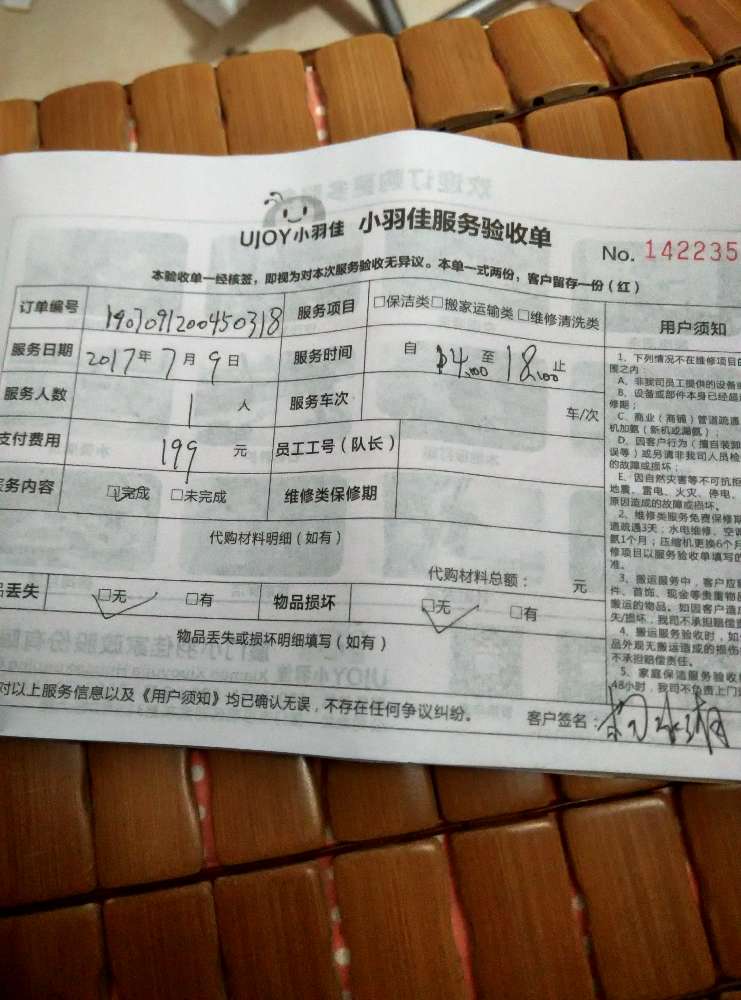 UJOY小羽佳 小羽佳服务验收单
No. 142235
本验收单一经核签，即视为对本次服务验收无异议。本单一式两份，客户留存一份（红）
订单编号 190709120045 0318 服务项目 □保洁类□搬家运输类□维修清洗类
服务日期 2017年7月9日 服务时间 自 14:00 至 18:00 止
服务人数 1 人 服务车次 车/次
支付费用 199 元 员工工号（队长）
务内容 ☑完成 □未完成 维修类保修期
代购材料明细（如有）
代购材料总额： 元
丢失 ☑无 □有 物品损坏 ☑无 □有
物品丢失或损坏明细填写（如有）
对以上服务信息以及《用户须知》均已确认无误，不存在任何争议纠纷。 客户签名：
用户须知
1、下列情况不在维修项目
围之内：
A、非我司员工提供的设备
B、设备或部件本身已经超
修期；
C、商业（商铺）管道疏通
机加氨（新机或漏氨）；
D、因客户行为（擅自装卸
误等）或另请非我司人员检
的故障或损坏；
E、因自然灾害等不可抗拒
地震、雷电、火灾、停电、
原因造成的故障或损坏。
2、维修类服务免费保修期
道疏通3天；水电维修、空调
氨1个月；压缩机更换6个月
修项目以服务验收单填写的
准。
3、搬运服务中，客户应
件、首饰、现金等贵重物品
搬运的物品。如因客户造成
失/损坏，我司不承担赔偿责
4、搬运服务验收时，如
品外观无搬运造成的损伤
不承担赔偿责任。
5、家庭保洁服务验收
48小时，我司不负责上门